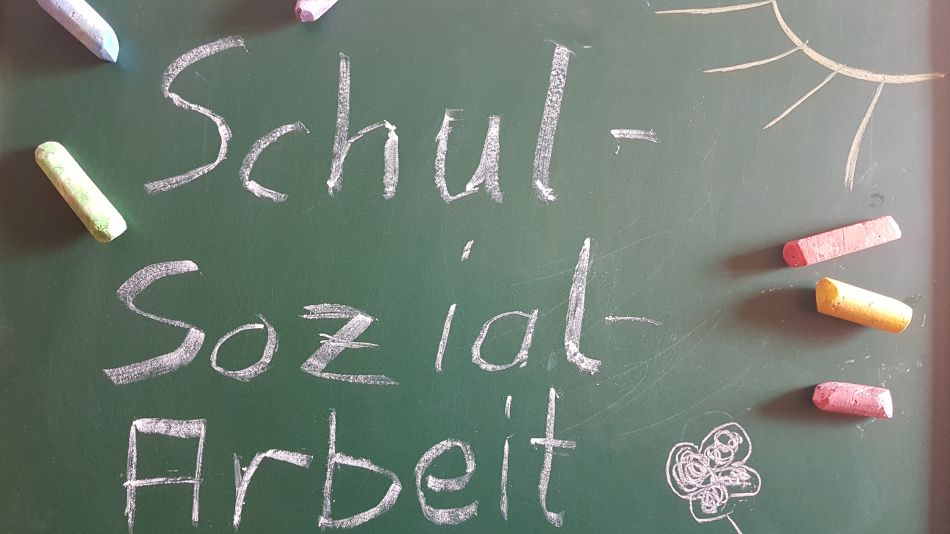 Schul-
Sozial-
Arbeit